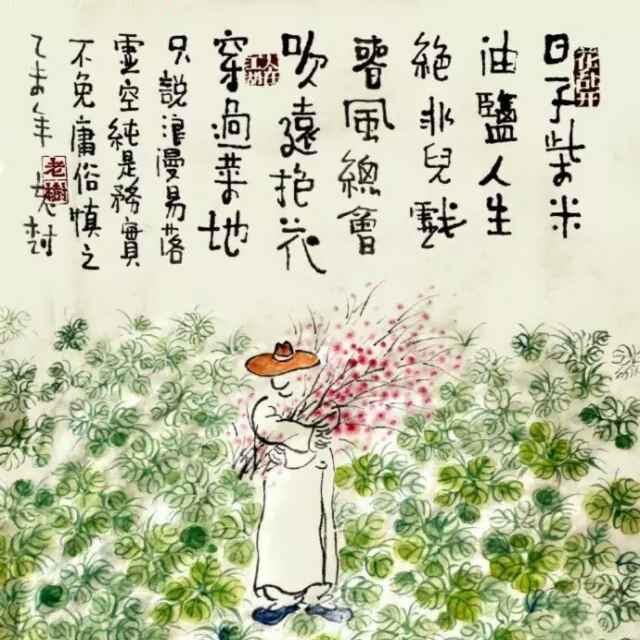 日子柴米
油鹽人生
絕非兒戲
春風總會
吹遠抱花
穿過菜地
只說浪漫易落
虛空純是務實
不免庸俗慎之
乙未年老树
老樹